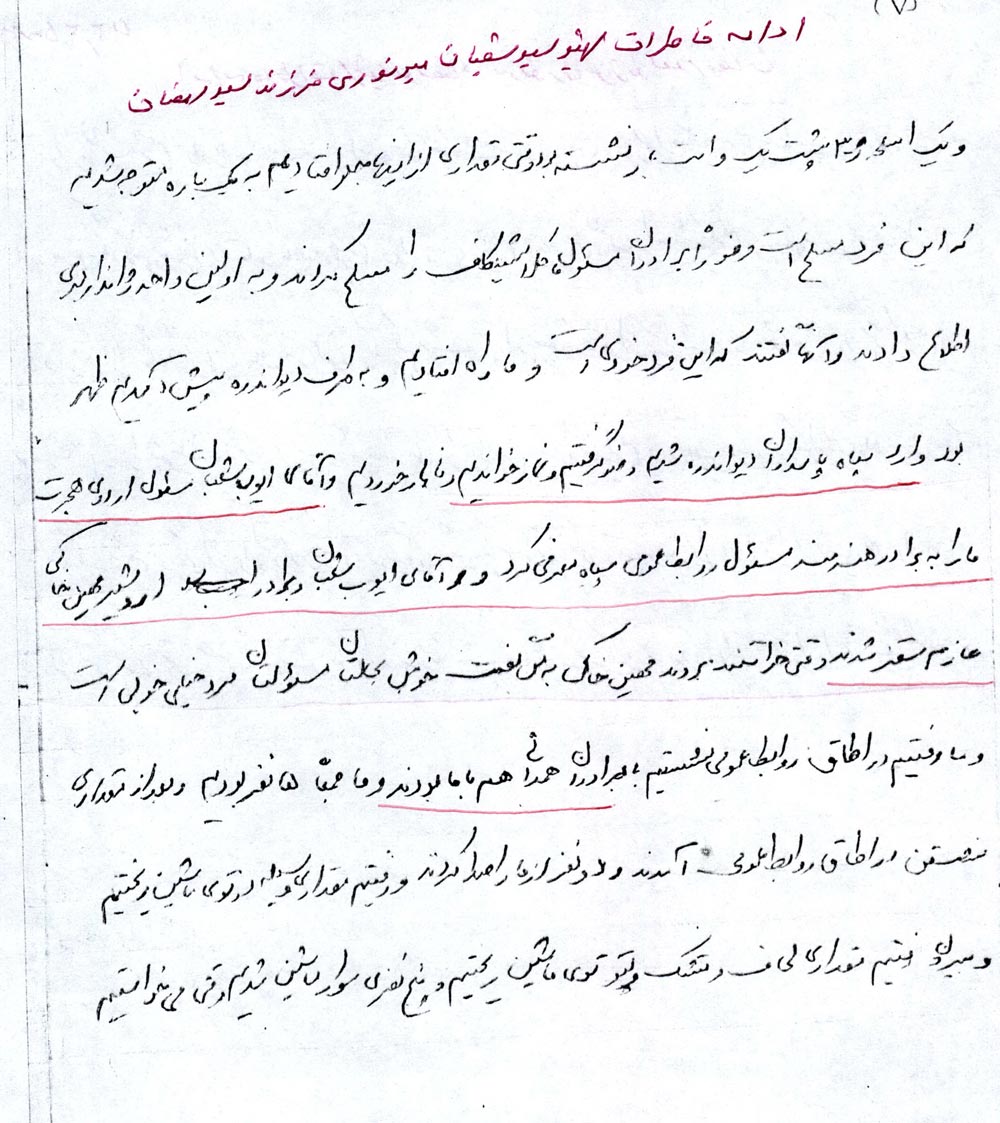 (۷)
ادامه خاطرات شهید سید سفیان میرنوری فرزند سید رمضان
و یک اسلحه ژ۳ پشت یک وانت بار نشسته بود وقتی مقداری از اینها جلو افتادیم به یک باره متوجه شدیم
که این فرد مسلح است و فوراً برادران مسئول ما کلاشینکف را مسلح کردند و به اولین واحد ژاندارمری
اطلاع دادند و آنها گفتند که این فرد خودی است و ما راه افتادیم و به طرف دیواندره پیش آمدیم ظهر
بود وارد سپاه پاسداران دیواندره شدیم وضو گرفتیم و نماز خواندیم و ناهار خوردیم و آقای ایوب شعبان مسئول اردوی هجرت
ما را به برادر هنرمند مسئول روابط عمومی سپاه معرفی کرد و آقای ایوب شعبان و برادر اردشیر معین خاکی
عازم سقز شدند وقتی خواستند بروند معین خاکی به من گفت خوش بحالتان مسئولتان مرد خیلی خوبی است
و ما رفتیم در اطاق روابط عمومی نشستیم برادران همدانی هم با ما بودند و ما جمعاً ۵ نفر بودیم و بعد از مقداری
نشستن در اطاق روابط عمومی آمدند و دو نفر از ما را صدا کردند و رفتیم مقداری وسیله در توی ماشین ریختیم
و بیرون رفتیم مقداری لحاف و تشک و پتو توی ماشین ریختیم و پنج نفری سوار ماشین شدیم وقتی می‌خواستیم